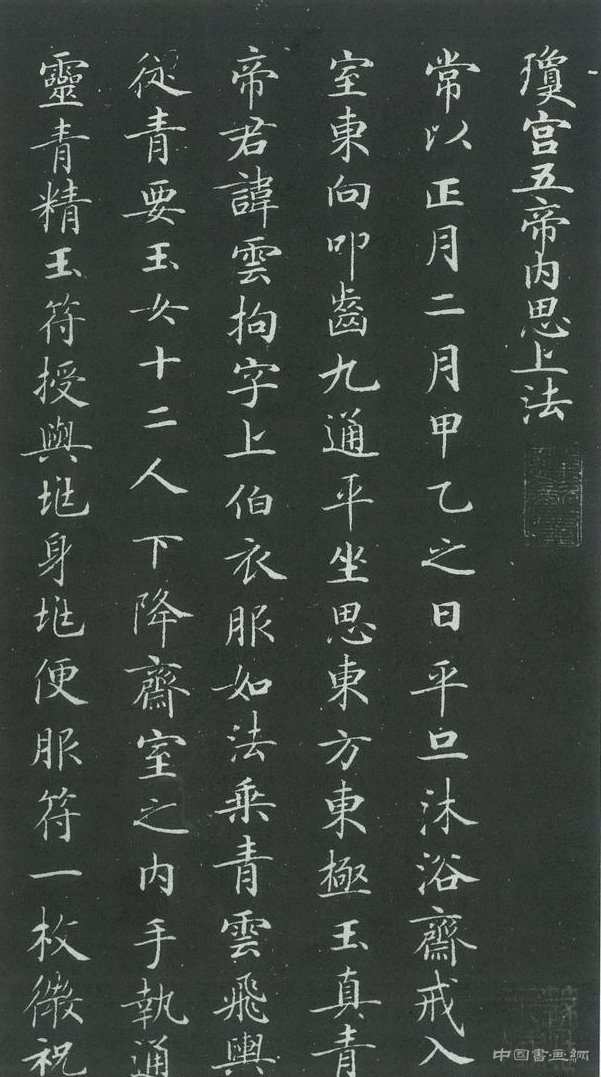 瓊宮五帝内思上法
常以正月二月甲乙之日平旦沐浴齋戒入
室東向叩齒九通平坐思東方東極玉真青
帝君諱雲拘字上伯衣服如法乘青雲飛輿
從青要玉女十二人下降齋室之内手執通
靈青精玉符授與𡉫身𡉫便服符一枚微祝
中国書画網